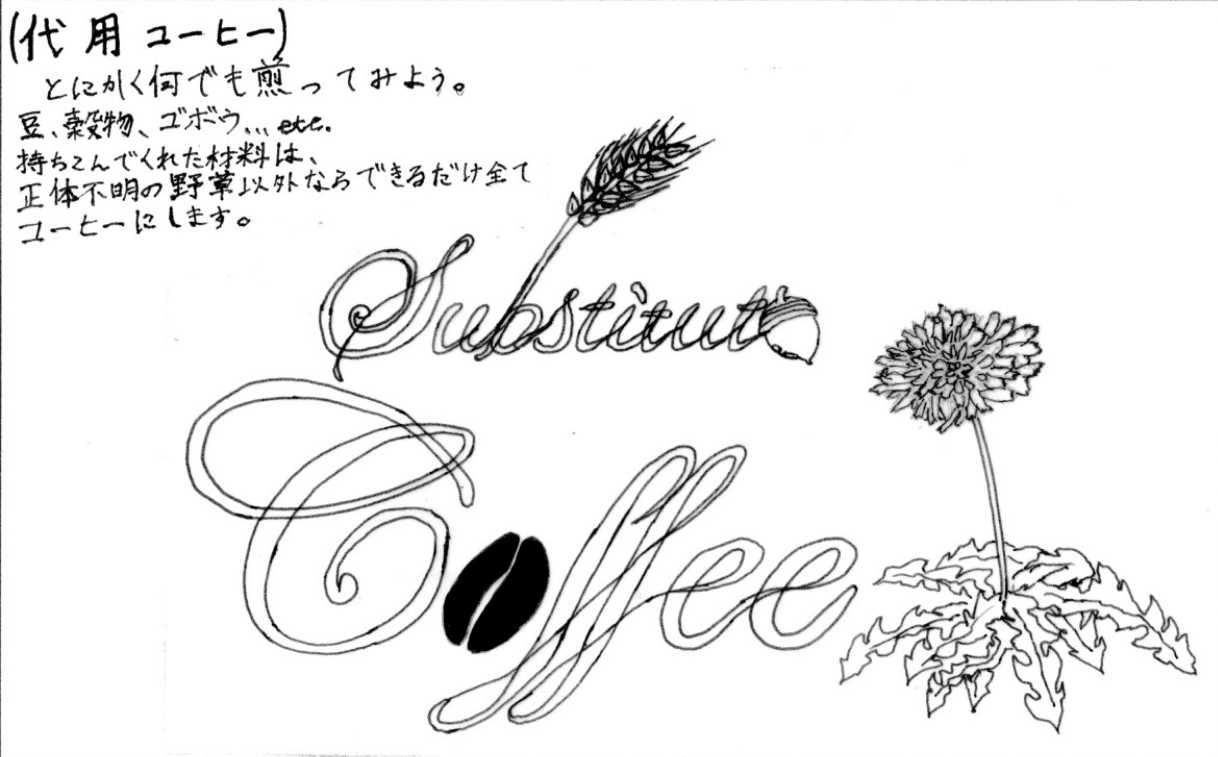 (代用コーヒー)
とにかく何でも煎ってみよう。
豆、穀物、ゴボウ... etc.
持ちこんでくれた材料は、
正体不明の野草以外ならできるだけ全て
コーヒーにします。
Substitute
Coffee